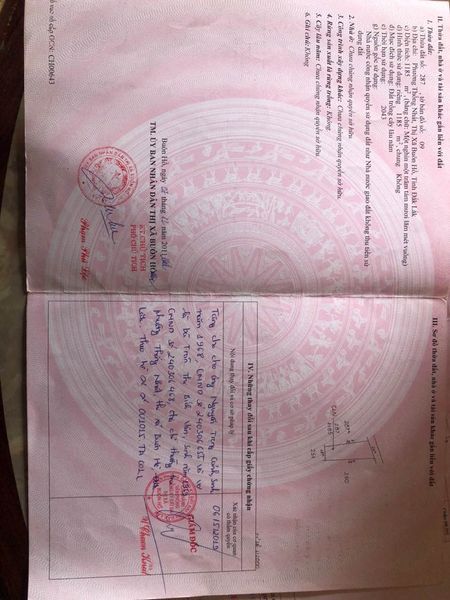 II. Thửa đất, nhà ở và tài sản khác gắn liền với đất
1. Thửa đất:
a) Thửa đất số: 287 , tờ bản đồ số: 09
b) Địa chỉ: Phường Thống Nhất, Thị Xã Buôn Hồ, Tỉnh Đắk Lắk
c) Diện tích: 1185 m², (bằng chữ: Một nghìn một trăm tám mươi lăm mét vuông)
d) Hình thức sử dụng: riêng 1185 m², chung Không
đ) Mục đích sử dụng: Đất trồng cây lâu năm
e) Thời hạn sử dụng: 2043
g) Nguồn gốc sử dụng:
Nhà nước công nhận quyền sử dụng đất như Nhà nước giao đất không thu tiền sử
dụng đất
2. Nhà ở: Chưa chứng nhận quyền sở hữu
3. Công trình xây dựng khác: Chưa chứng nhận quyền sở hữu.
4. Rừng sản xuất là rừng trồng: Không.
5. Cây lâu năm: Chưa chứng nhận quyền sở hữu.
6. Ghi chú: Không
Buôn Hồ, ngày tháng năm
TM. ỦY BAN NHÂN DÂN THỊ XÃ BUÔN HỒ
KT. CHỦ TỊCH
PHÓ CHỦ TỊCH
Phạm Phú Lộc
CH00643
III. Sơ đồ thửa đất, nhà ở và tài sản khác gắn liền với đất
287
1185
IV. Những thay đổi sau khi cấp giấy chứng nhận
Nội dung thay đổi và cơ sở pháp lý
Xác nhận của cơ quan có thẩm quyền
Tặng cho cho ông Nguyễn Trọng Cảnh, sinh
năm 1968, CMND số 240306455 và vợ
là bà Trần Thị Văn, sinh năm 1969
CMND số 240306468, địa chỉ thường trú
phường Thống Nhất, thị xã Buôn Hồ
Theo hồ sơ số
06/5/2015
GIÁM ĐỐC